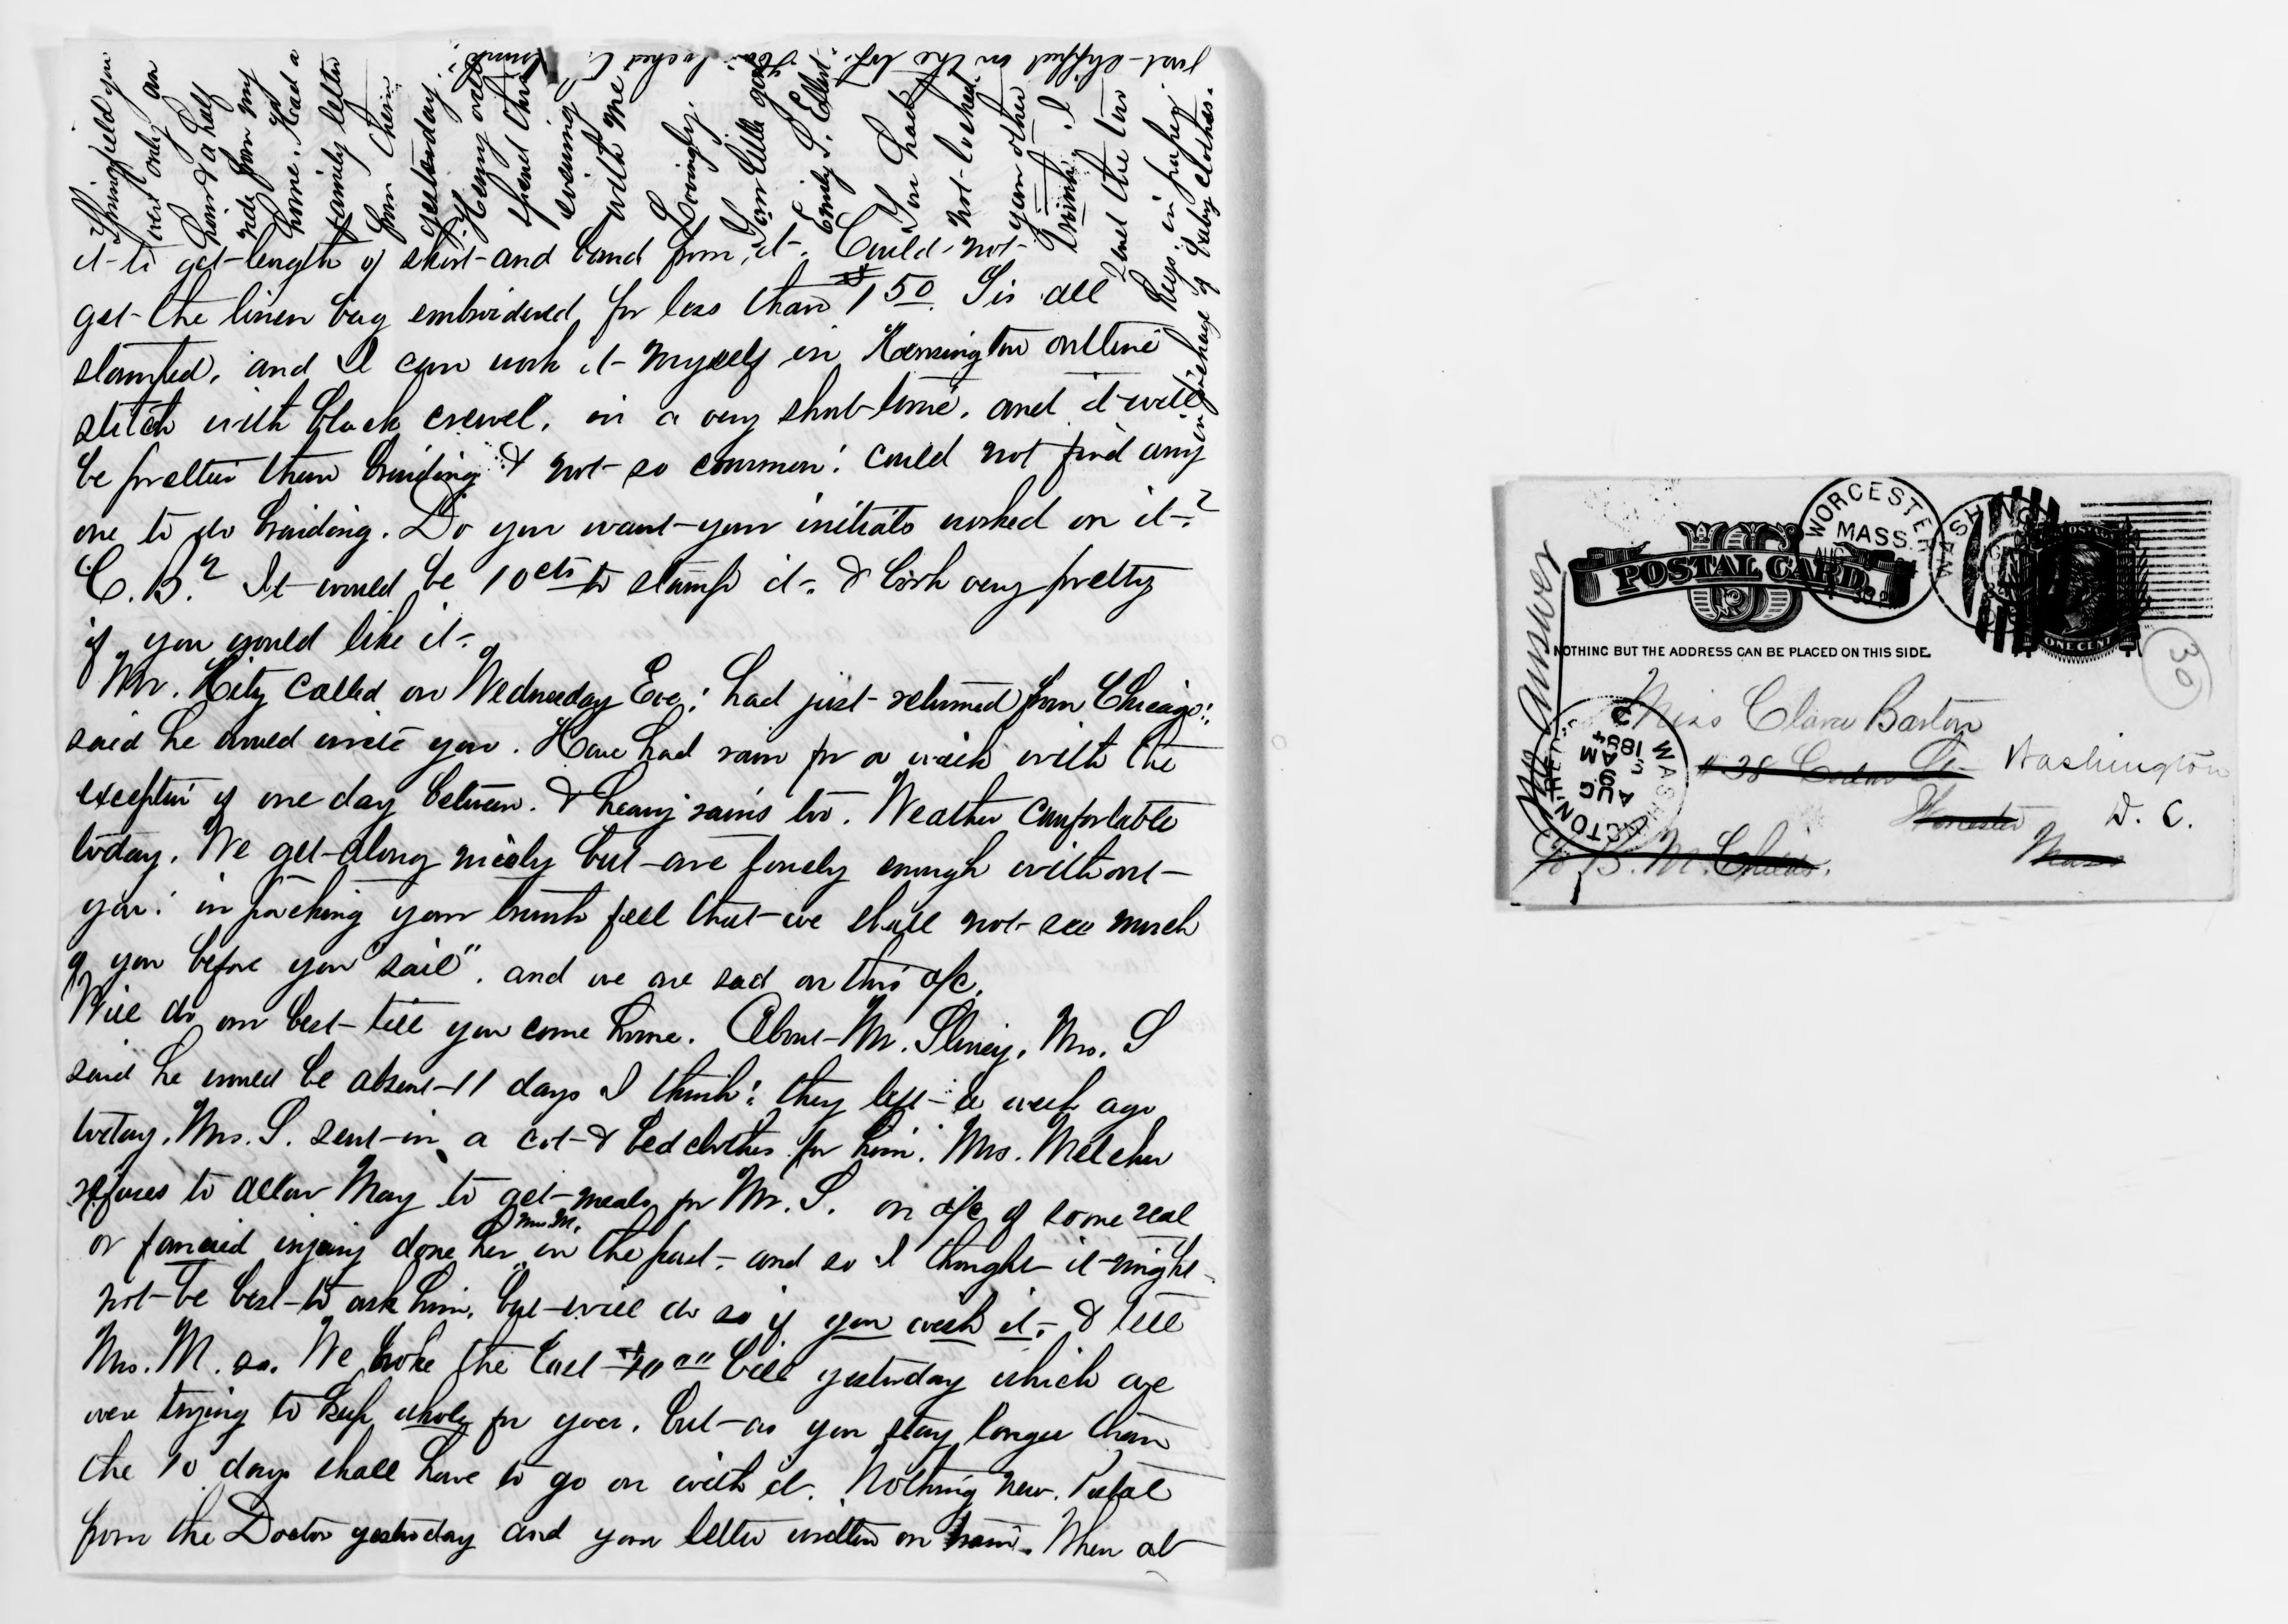 it to get length of skirt and band from it. Could not
get the linen bag embroidered for less than $1 50. Tis all
stamped, and I can work it myself in Kensington outline
stitch with black crewel, in a very short time, and it will
be prettier than braiding & not so common: could not find any
one to do braiding. Do you want your initials worked on it?
C. B.? It would be 10 cts to stamp it & look very pretty
if you would like it.
Mr. Hitz called on Wednesday Eve; had just returned from Chicago:
said he would write you. Have had rain for a week with the
exception of one day between. & heavy rains too. Weather comfortable
today. We get along nicely but are lonely enough without
you: in packing your trunk feel that we shall not see much
of you before you "sail", and we are sad on this a/c.
Will do our best till you come home. About Mr. Mrs. S
said he would be absent 11 days I think: they left a week ago
today. Mrs. S. sent in a cot & bed clothes for him. Mrs. Melcher
refuses to allow May to get meals for Mr. S. on a/c of some real
or fancied injury done her in the past, and so I thought it might
Mrs. M.
not be best to ask him, but will do so if you wish it, & tell
Mrs. M. so. We broke the last bill yesterday which we
were trying to keep whole for you, but as you stay longer than
the 10 days shall have to go on with it. Nothing new. Postal
from the Doctor yesterday and your letter written on train. When at
Springfield you
were only an
hour & a half
ride from my
home. Had a
family letter
from them
yesterday.
Henry
spent this
evening
with me
Lovingly,
Your little
Emily S.
You had
not locked
your other
trunk. I
put the two
keys in
in package of baby clothes.
just slipped on the top.
No answer
WORCESTER
MASS.
AUG
U S
POSTAL CARD.
ONE CENT
NOTHING BUT THE ADDRESS CAN BE PLACED ON THIS SIDE.
30
Miss Clara Barton
Washington
Worcester
D. C.
Mass
B. M. Childs.
AUG
9 AM
1884